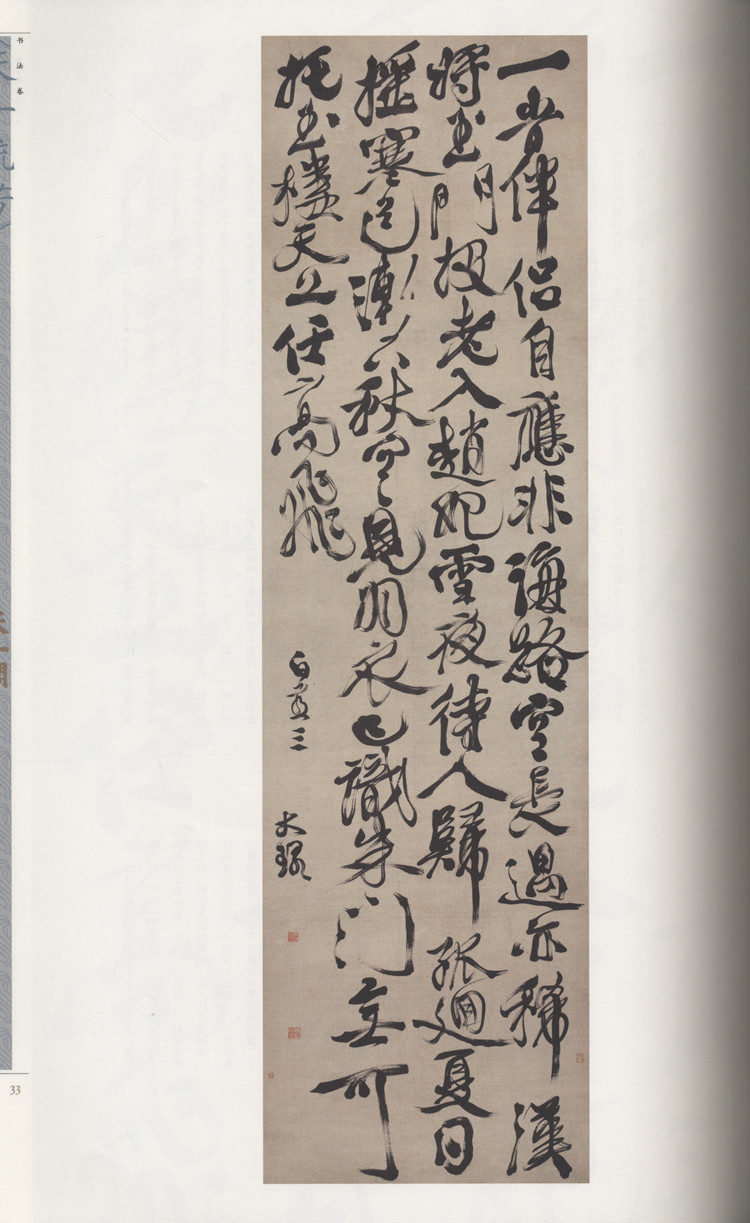 一伴侶自應非海路空長遇亦稀漢
將玉門投老入趙妃雪夜待人歸張迴夏日
搖寒色秋空見羽衣已識朱門豈可
托玉樓天上任高飛
白燕三
大
书法卷
33